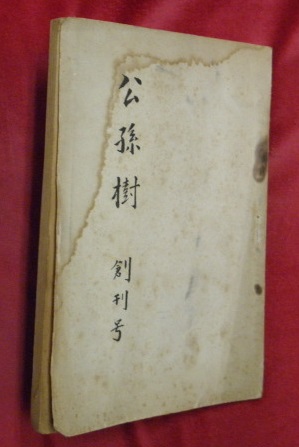 公孫樹 創刊号